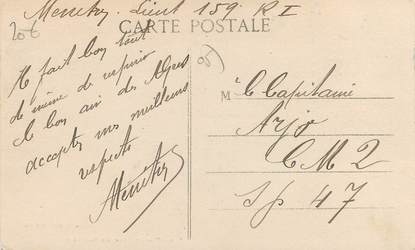 Menetrey. Lieut 159 R I
206
CARTE POSTALE
Il fait bon tout
de même de respirer
le bon air des Alpes
acceptez mes meilleurs
respects
M le Capitaine
Arjo
CM2
SP 47